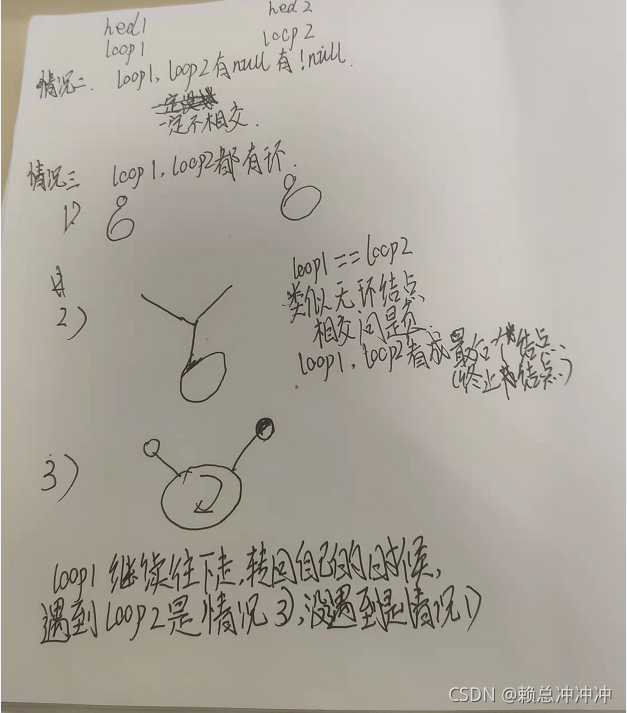 hed1 hed2
loop1 loop2
情况二. loop1, loop2有null有!null.
一定不相交.
情况三 loop1, loop2都有环.
1)
2)
loop1 == loop2
类似无环结点
相交问题
loop1, loop2看成最后一个结点.
(终止结点.)
3)
loop1 继续往下走,转回自己的时候,
遇到loop2是情况3),没遇到是情况1)
CSDN @赖总冲冲冲